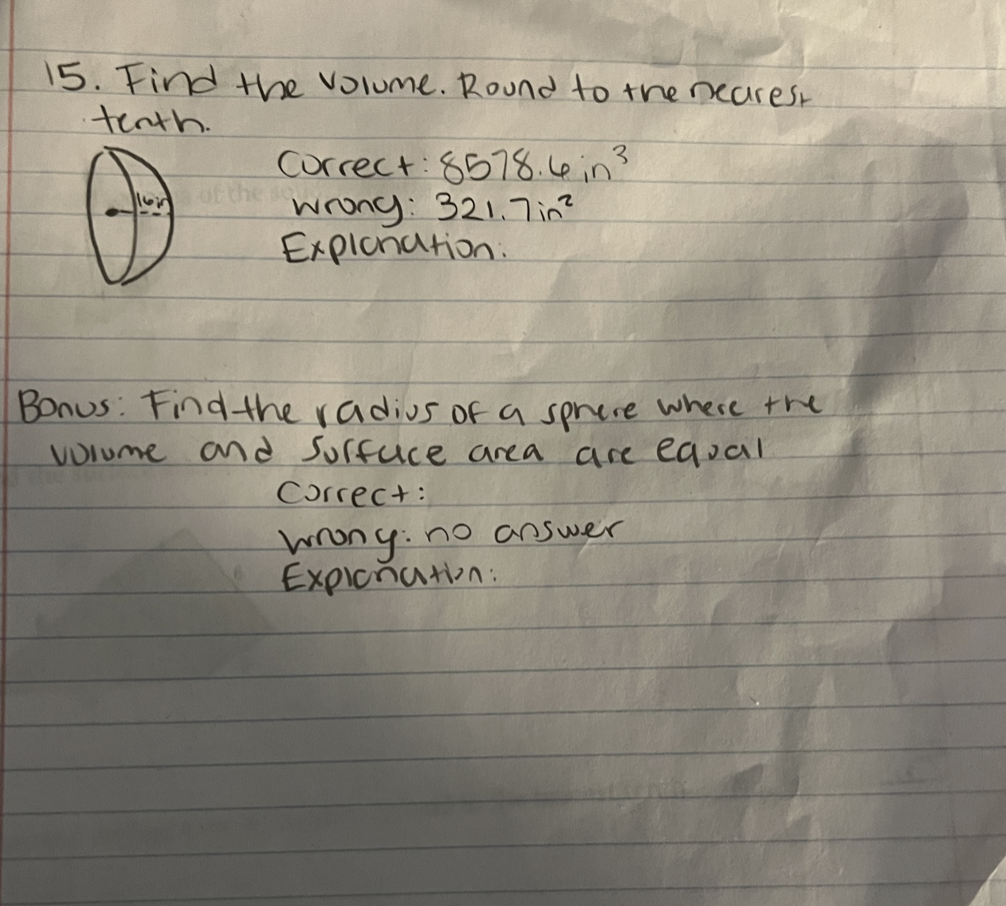 15. Find the volume. Round to the nearest
tenth.
16in
Correct: 8578.6in³
Wrong: 321.7in²
Explanation:
Bonus: Find the radius of a sphere where the
volume and surface area are equal
Correct:
Wrong: no answer
Explanation: